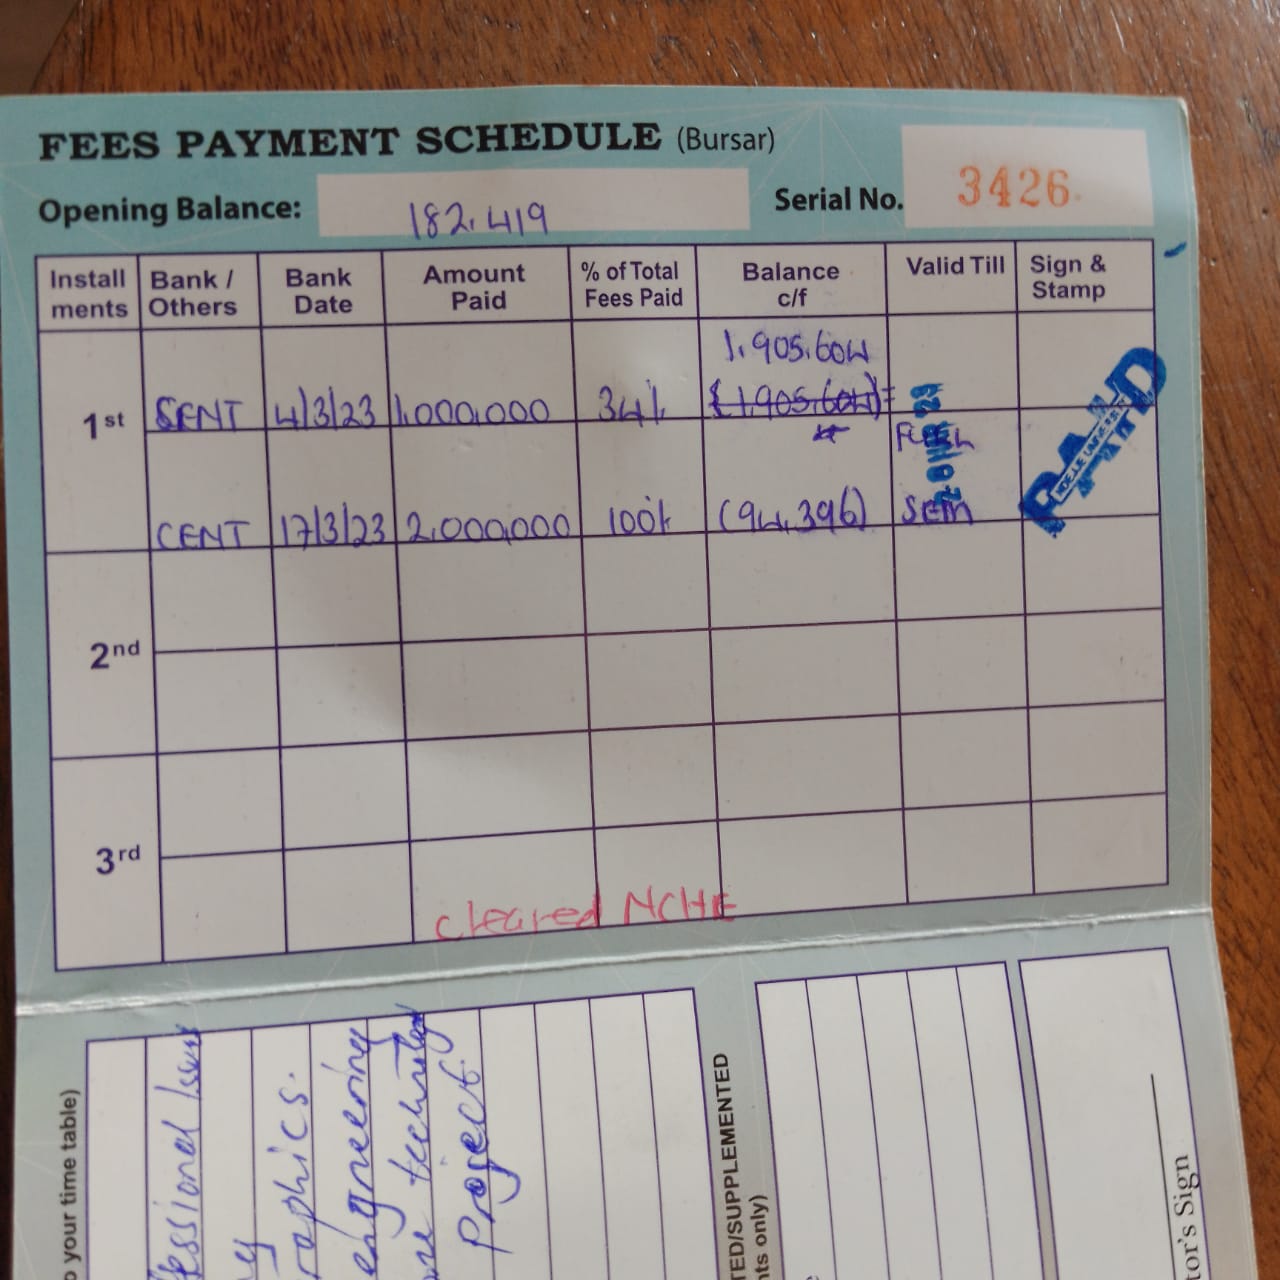 FEES PAYMENT SCHEDULE (Bursar)
Opening Balance: 182.419 Serial No. 3426
Install ments Bank / Others Bank Date Amount Paid % of Total Fees Paid Balance c/f Valid Till Sign & Stamp
1.905.604
1st CENT 4/3/23 1,000,000 34% (1,905,604)
FULL
CENT 17/3/23 2,000,000 100% (94,396) SEM
PAID
2nd
3rd
cleared NCHE
o your time table)
fessional Issues
raphics.
engineering
technology
Project.
TED/SUPPLEMENTED
nts only)
tor's Sign